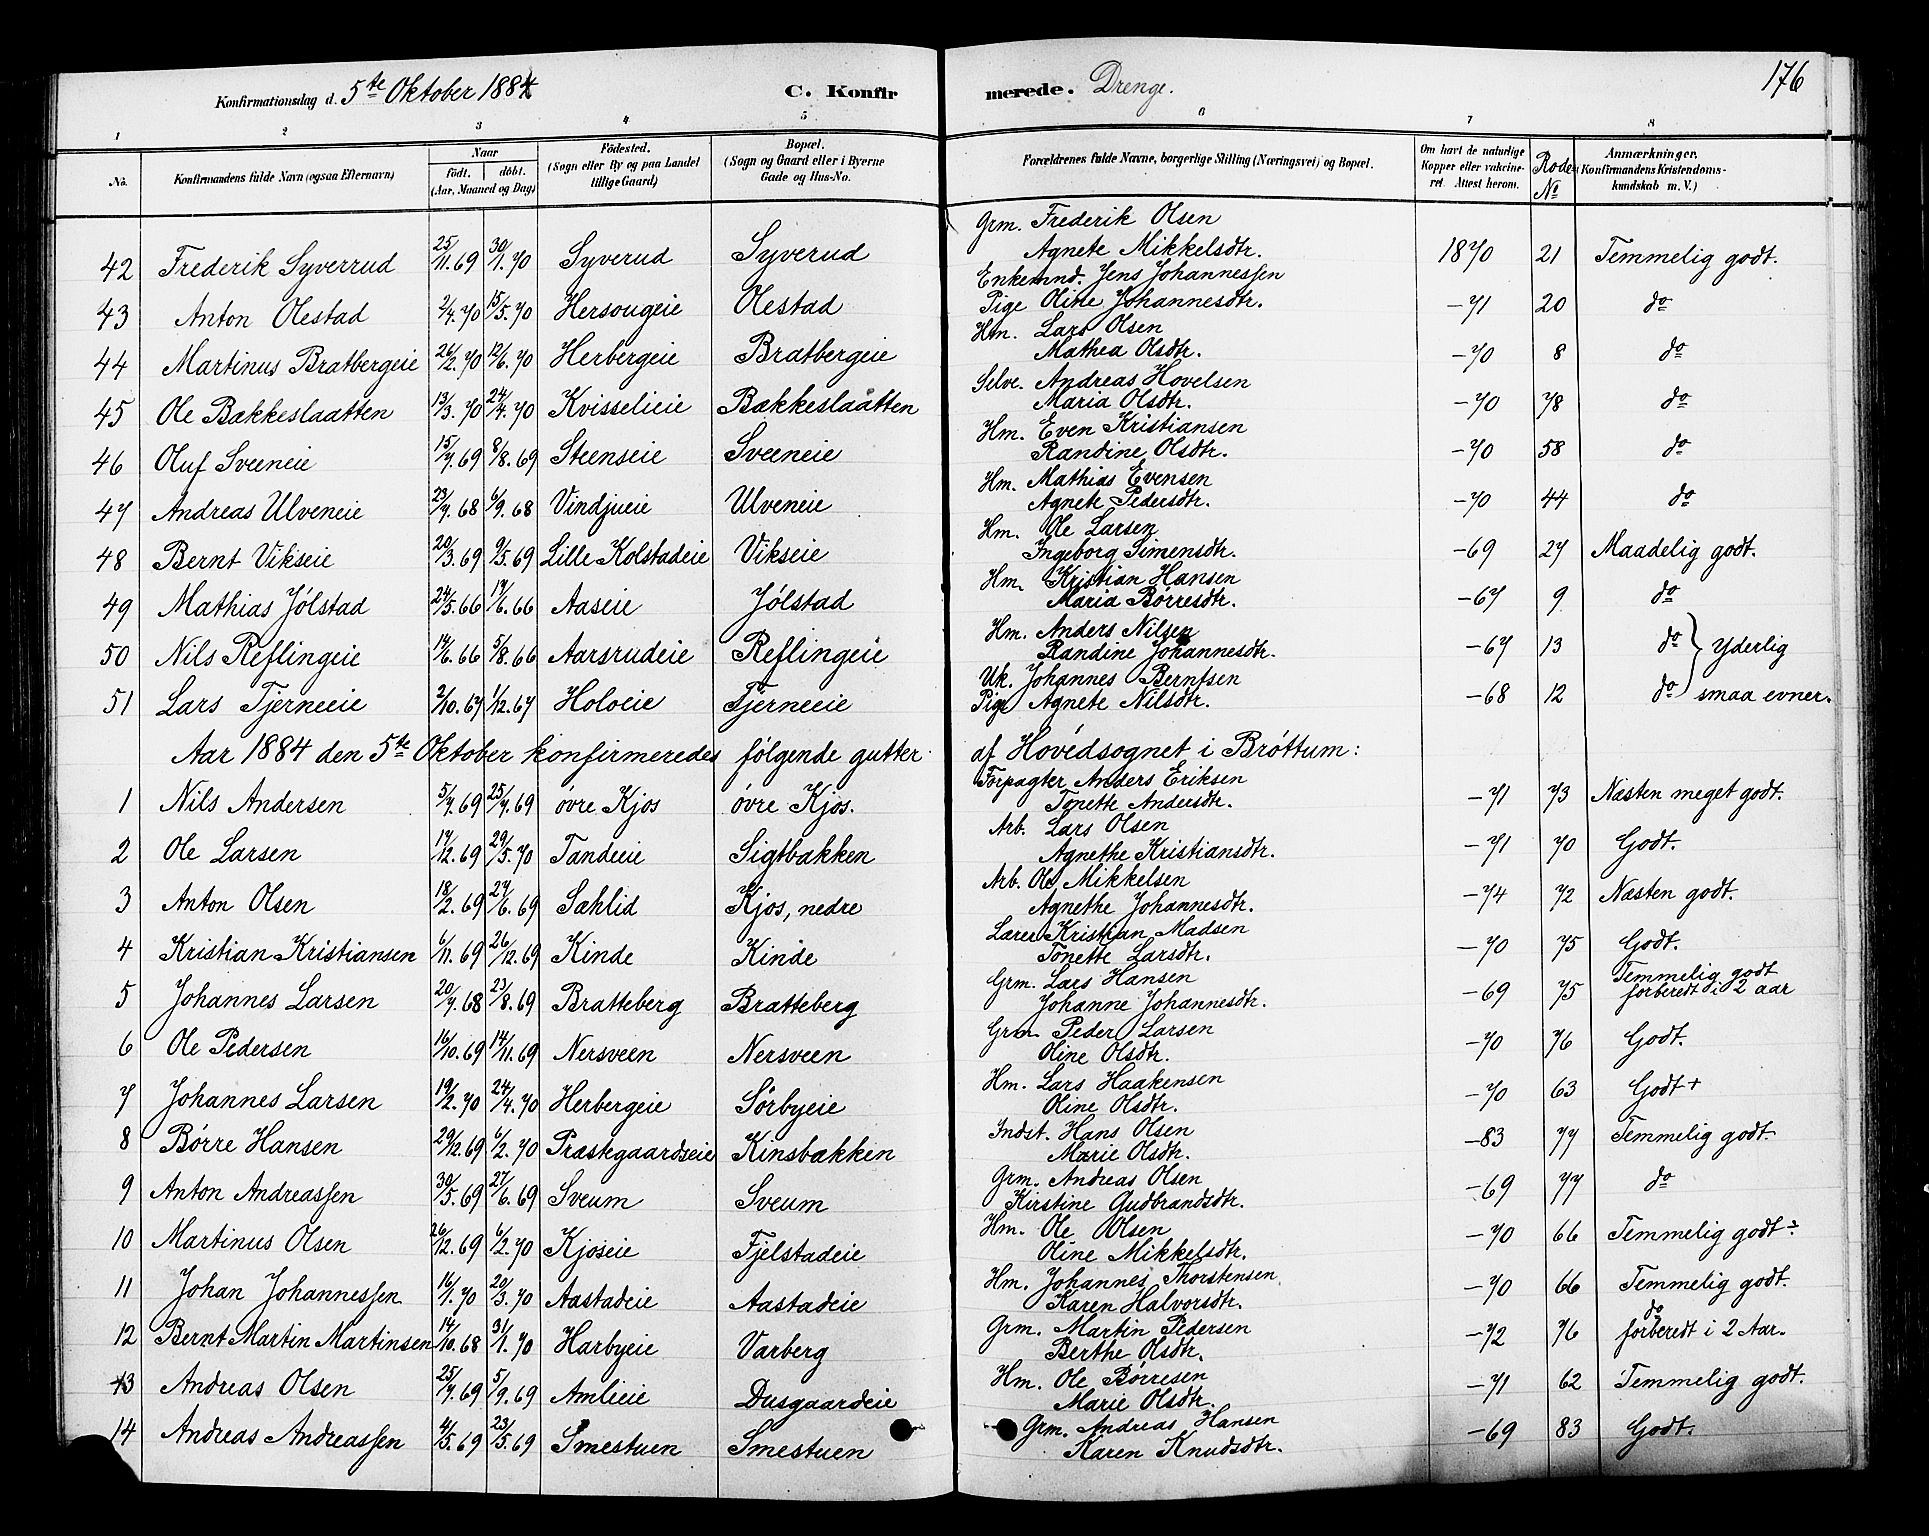 176
Konfirmationsdag d. 5te Oktober 1884 C. Konfir merede. Drenge.
1 2 3 4 5 6 7 8
No. Konfirmandens fulde Navn (ogsaa Efternavn) Naar født. døbt. (Aar, Maaned og Dag) Fødested. (Sogn eller By og paa Landet tillige Gaard) Bopæl. (Sogn og Gaard eller i Byerne Gade og Hus-No. Forældrenes fulde Navne, borgerlige Stilling (Næringsvei) og Bopæl. Om havt de naturlige Kopper eller vakcineret. Attest herom. Rode No Anmærkninger, (Konfirmandens Kristendomskundskab m. V.)
42 Frederik Syverrud 25/11.69 30/1.70 Syverud Syverud Grm. Frederik Olsen Agnete Mikkelsdtr. 1870 21 Temmelig godt.
43 Anton Olestad 2/4.70 15/5.70 Hersougeie Olestad Enkemnd. Jens Johannessen Pige Oline Johannesdtr. -71 20 do
44 Martinus Bratbergeie 26/2.70 12/6.70 Herbergeie Bratbergeie Hm. Lars Olsen Mathea Olsdtr. -70 8 do
45 Ole Bakkeslaatten 13/3.70 24/4.70 Kvisselieie Bakkeslaatten Selve. Andreas Hovelsen Maria Olsdtr. -70 78 do
46 Oluf Sveeneie 15/7.69 8/8.69 Steenseie Sveeneie Hm. Even Kristiansen Randine Olsdtr. -70 58 do
47 Andreas Ulveneie 23/7.68 6/9.68 Vindjueie Ulveneie Hm. Mathias Evensen Agnete Pedersdtr. -70 44 do
48 Bernt Vikseie 20/3.69 9/5.69 Lille Kolstadeie Vikseie Hm. Ole Larsen Ingeborg Simensdtr. -69 27 Maadelig godt.
49 Mathias Jølstad 24/5.66 17/6.66 Aaseie Jølstad Hm. Kristian Hansen Maria Børresdtr. -67 9 do
50 Nils Reflingeie 17/6.66 5/8.66 Aarsrudeie Reflingeie Hm. Anders Nilsen Randine Johannesdtr. -67 13 do } Yderlig
51 Lars Tjerneeie 2/10.67 1/12.67 Holoeie Tjerneeie Uk. Johannes Berntsen Pige Agnete Nilsdtr. -68 12 do } smaa evner.
Aar 1884 den 5te Oktober konfirmeredes følgende gutter af Hovedsognet i Brøttum:
1 Nils Andersen 5/7.69 25/7.69 øvre Kjos øvre Kjos. Forpagter Anders Eriksen Tonette Andersdtr. -71 73 Næsten meget godt.
2 Ole Larsen 17/12.69 29/5.70 Tandeeie Sigtbakken Arb. Lars Olsen Agnethe Kristiansdtr. -71 70 Godt.
3 Anton Olsen 18/2.69 27/6.69 Sæhlid Kjos, nedre Arb. Ole Mikkelsen Agnethe Johannesdtr. -74 72 Næsten godt.
4 Kristian Kristiansen 6/11.69 26/12.69 Kinde Kinde Lærer Kristian Madsen Tonette Larsdtr. -70 75 Godt.
5 Johannes Larsen 20/7.68 23/8.69 Bratteberg Bratteberg Grm. Lars Hansen Johanne Johannesdtr. -69 75 Temmelig godt forberedt i 2 aar
6 Ole Pedersen 16/10.69 14/11.69 Nersveen Nersveen Grm Peder Larsen Oline Olsdtr. -70 76 Godt.
7 Johannes Larsen 19/2.70 24/4.70 Herbergeie Sørbyeie Hm. Lars Haakensen Oline Olsdtr. -70 63 Godt +
8 Børre Hansen 29/12.69 6/2.70 Præstgaardseie Kinsbakken Indst. Hans Olsen Marie Olsdtr. -83 77 Temmelig godt.
9 Anton Andreassen 30/5.69 27/6.69 Sveum Sveum Grm. Andreas Olsen Kirstine Gudbrandsdtr. -69 77 do
10 Martinus Olsen 26/12.69 6/2.70 Kjoseie Fjelstadeie Hm. Ole Olsen Oline Mikkelsdtr. -70 66 Temmelig godt÷
11 Johan Johannessen 16/1.70 20/3.70 Aastadeie Aastadeie Hm. Johannes Thorstensen Karen Halvorsdtr. -70 66 Temmelig godt.
12 Bernt Martin Martinsen 14/10.68 31/1.70 Harbyeie Varberg Grm. Martin Pedersen Berthe Olsdtr. -72 76 do forberedt i 2 Aar.
13 Andreas Olsen 25/7.69 5/9.69 Amlieie Dusgaardeie Hm. Ole Børresen Marie Olsdtr. -71 62 Temmelig godt.
14 Andreas Andreassen 4/5.69 23/5.69 Smestuen Smestuen Grm. Andreas Hansen Karen Knudsdtr. -69 83 Godt.